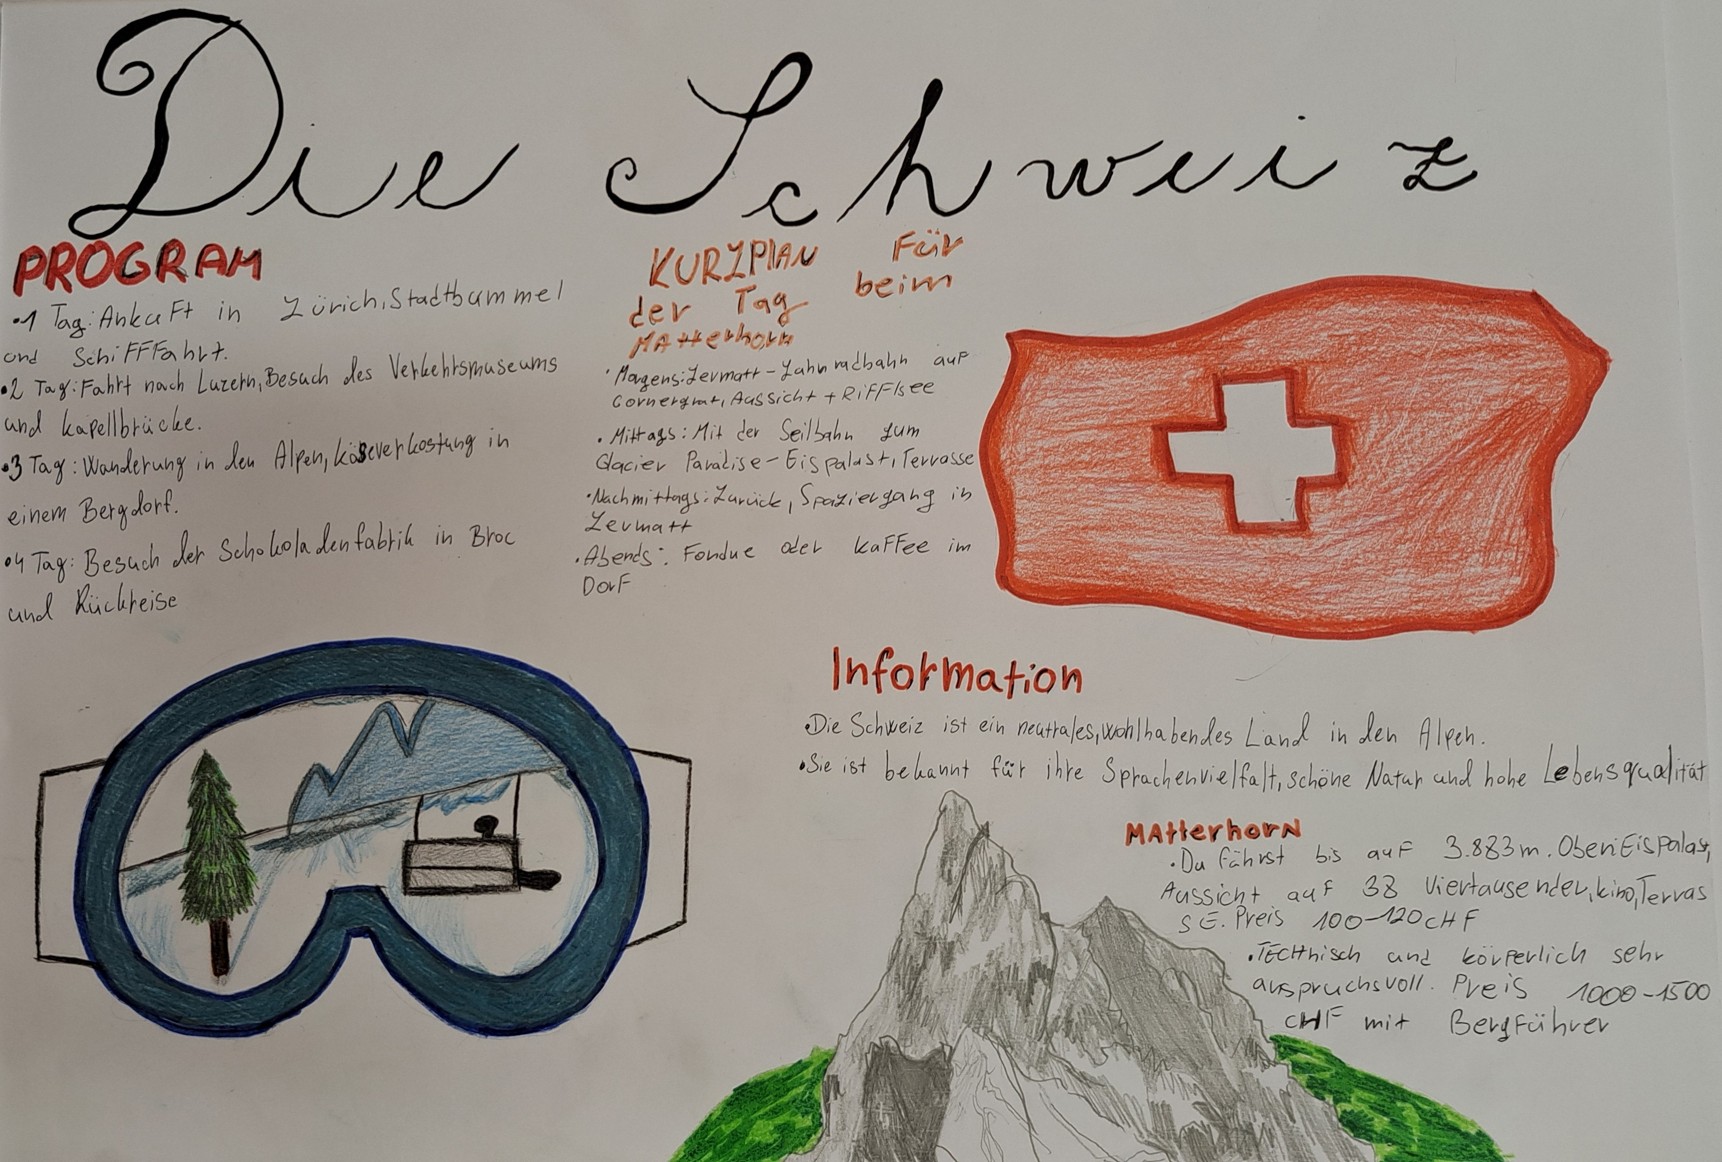 Die Schweiz
PROGRAM
•1 Tag: Ankuft in Zürich, Stadtbummel
und Schifffahrt.
•2 Tag: Fahrt nach Luzern, Besuch des Verkehrsmuseums
und Kapellbrücke.
•3 Tag: Wanderung in den Alpen, käseverkostung in
einem Bergdorf.
•4 Tag: Besuch der Schokoladenfabrik in Broc
und Rückreise
KURZPlAN Für
der Tag beim
MAtterhorn
•Morgens: Zermatt - Zahnradbahn auf
Gornergrat, Aussicht + Rifflsee
•Mittags: Mit der Seilbahn zum
Glacier Paradise - Eispalast, Terrasse
•Nachmittags: Zurück, Spaziergang in
Zermatt
•Abends: Fondue oder kaffee im
Dorf
Information
•Die Schweiz ist ein neutrales, wohlhabendes Land in den Alpen.
•Sie ist bekannt für ihre Sprachenvielfalt, schöne Natur und hohe Lebensqualität
MAtterhorN
•Du fährst bis auf 3.883m. Oben: Eispalast,
Aussicht auf 38 Viertausender, kino, Terras
SE. Preis 100-120 CHF
•TECHnisch und körperlich sehr
anspruchsvoll. Preis 1000-1500
CHF mit Bergführer